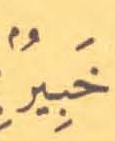 خَبِيرٌ